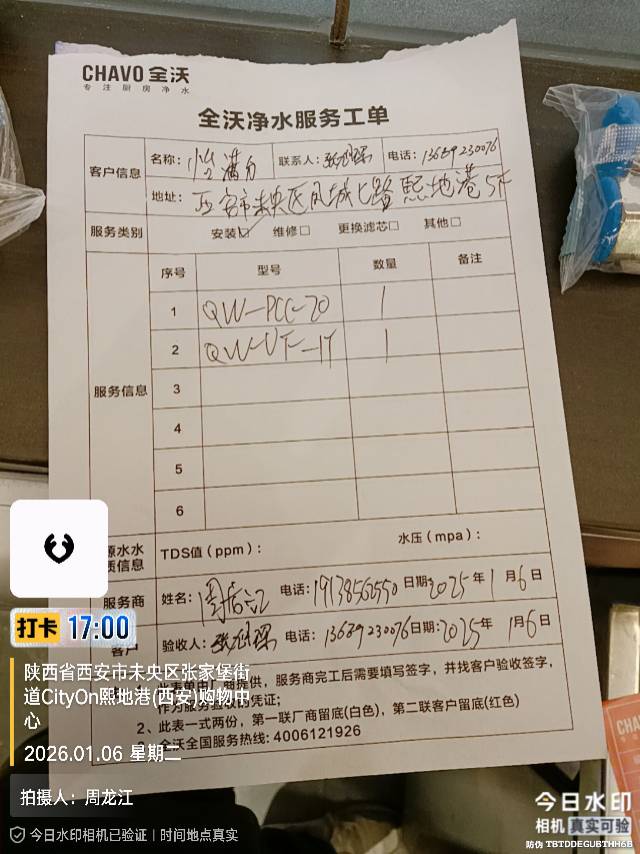 CHAVO 全沃
专注厨房净水
全沃净水服务工单
客户信息
名称：怡满分 联系人： 电话：13689230076
地址：西安市未央区凤城七路熙地港5F
服务类别 安装☑ 维修☐ 更换滤芯☐ 其他☐
服务信息
序号 型号 数量 备注
1 QW-PCC-70 1
2 QW-UF-1T 1
3
4
5
6
源水水质信息 TDS值（ppm）： 水压（mpa）：
服务商 姓名：周龙江 电话：19138562550 日期：2025年1月6日
客户 验收人： 电话：13689230076 日期：2025年1月6日
提供，服务商完工后需要填写签字，并找客户验收签字，
作为服务验收的凭证；
2、此表一式两份，第一联厂商留底(白色)，第二联客户留底(红色)
全沃全国服务热线：4006121926
打卡 17:00
陕西省西安市未央区张家堡街
道CityOn熙地港(西安)购物中
心
2026.01.06 星期二
拍摄人：周龙江
今日水印相机已验证｜时间地点真实
今日水印
相机 真实可验
防伪 TBTDDEGUBTHH6B